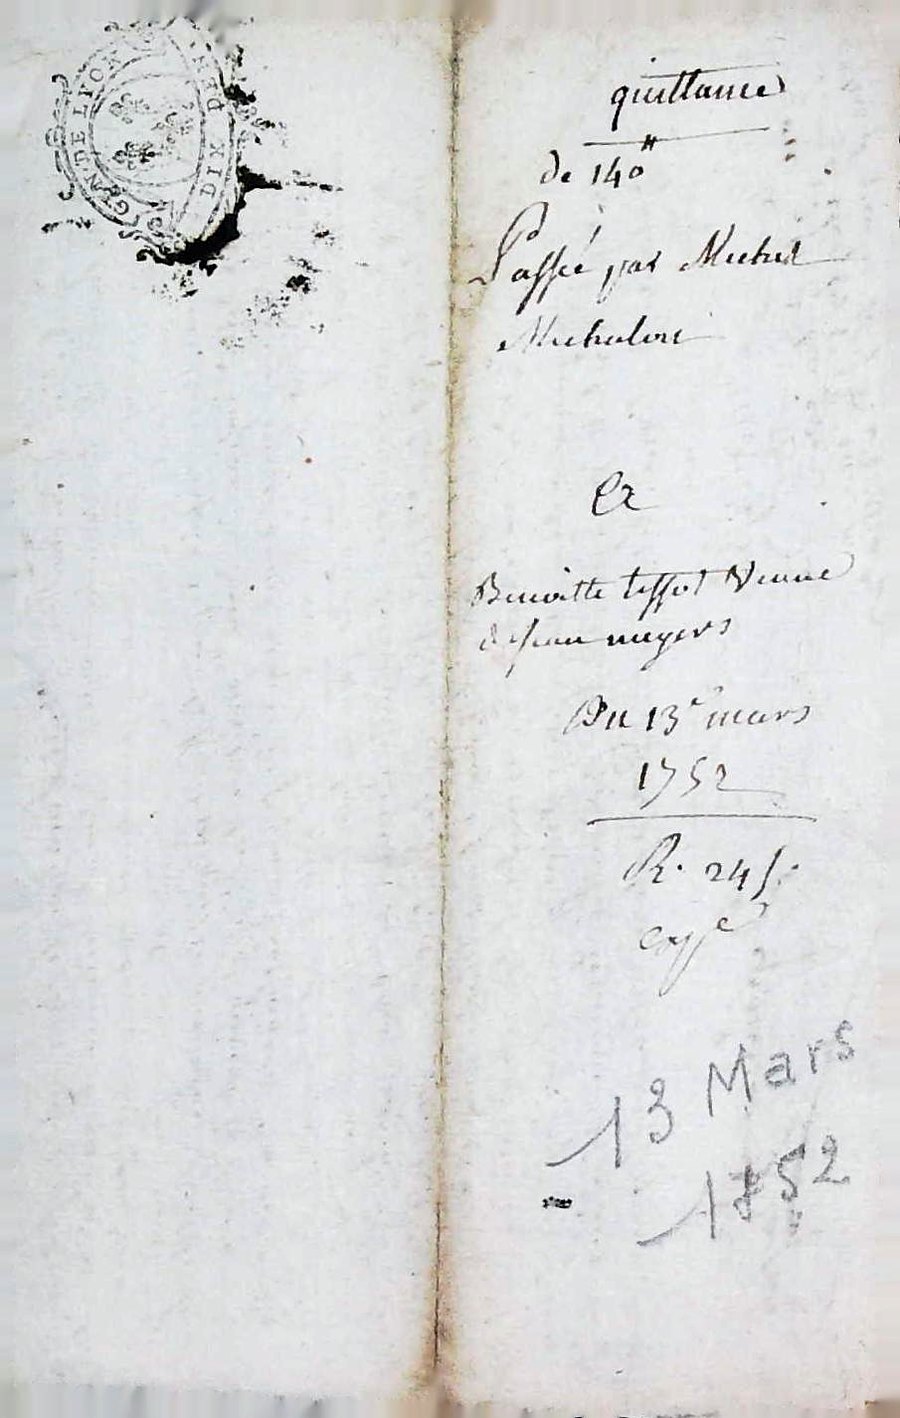 GEN. DE LYON
DIX DEN.
quittance
de 140#
Passée par Michel
Michalon
Et
Benoitte tessot Veuve
de Jean
Du 13e mars
1752
R. 24 s
13 Mars
1752